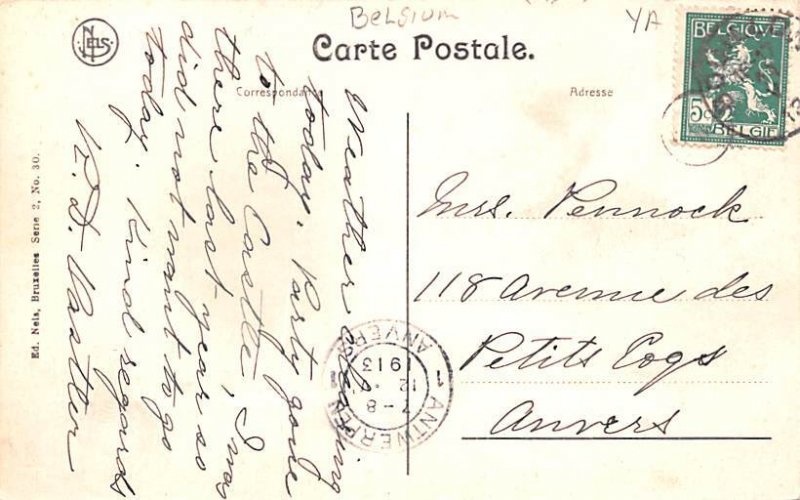 Belgium
YA
NELS
Carte Postale.
Correspondance
Adresse
BELGIQUE
5c
BELGIE
Weather clearing
today. Party gone
to the Castle, I was
there last year so
did not want to go
today. Kind regards
Mrs. Pennock
118 Avenue des
Petits Cogs
Anvers
ANVERS
1913
12
7-8
1 1
ANTWERPEN
Ed. Nels, Bruxelles Serie 2, No. 30.